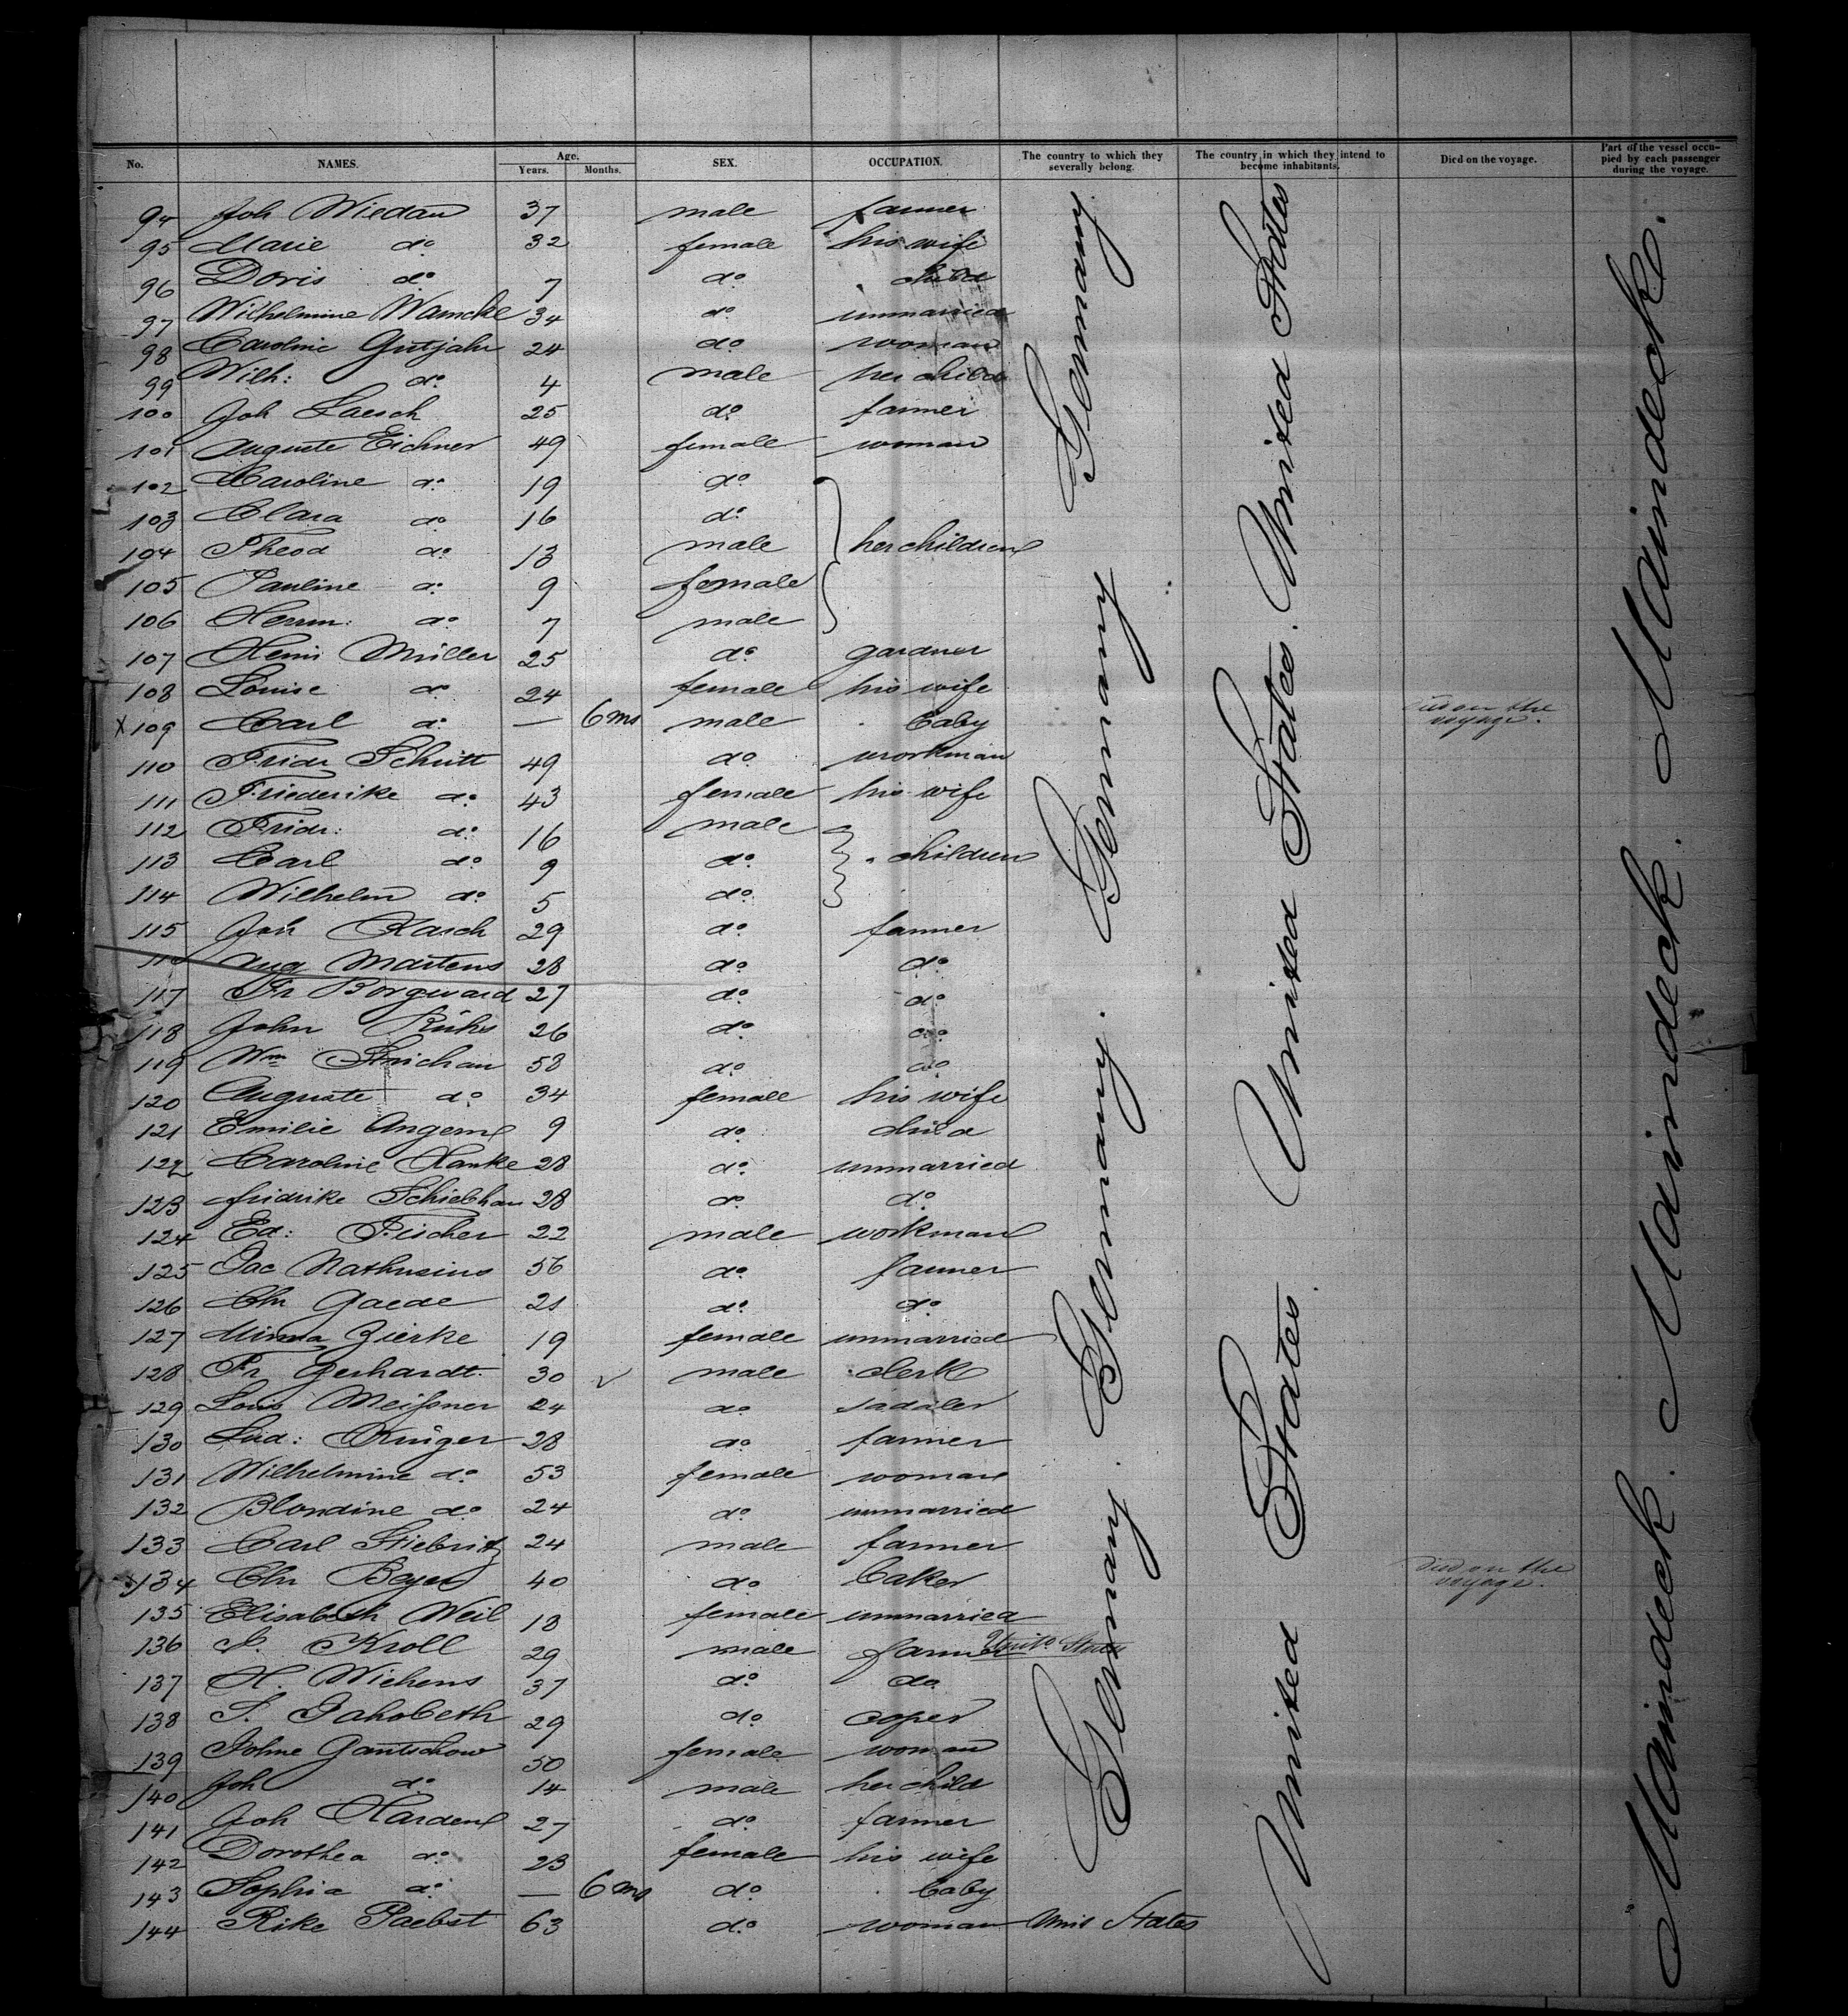 No. NAMES. Age. Years. Months. SEX. OCCUPATION. The country to which they severally belong. The country in which they intend to become inhabitants. Died on the voyage. Part of the vessel occupied by each passenger during the voyage.
94 Joh Wiedau 37 male farmer
95 Marie do 32 female his wife
96 Doris do 7 do child
97 Wilhelmine Warncke 34 do unmarried
98 Caroline Gutjahr 24 do woman
99 Wilh: do 4 male her child
100 Joh Laesch 25 do farmer
101 Auguste Eichner 49 female woman
102 Caroline do 19 do
103 Clara do 16 do
104 Theod do 13 male her children
105 Pauline do 9 female
106 Herrm: do 7 male
107 Henri Müller 25 do gardner
108 Louise do 24 female his wife
X 109 Carl do — 6 ms male baby died on the voyage.
110 Fridr Schütt 49 do workman
111 Friederike do 43 female his wife
112 Fridr: do 16 male
113 Carl do 9 do children
114 Wilhelm do 5 do
115 Joh Kasch 29 do farmer
Aug Martens 28 do do
117 Fr Borgward 27 do do
118 John Rühs 26 do do
119 Wm 58 do do
120 Auguste do 34 female his wife
121 Emilie 9 do child
122 Caroline Hanke 28 do unmarried
123 Fridrike 28 do do
124 Ed: Fischer 22 male workman
125 Jac Nathusius 56 do farmer
126 Chr Gaede 21 do do
127 Minna Zierke 19 female unmarried
128 Fr Gerhardt 30 male clerk
129 Louis Meißner 24 do saddler
130 Lud: Krüger 28 do farmer
131 Wilhelmine do 53 female woman
132 Blondine do 24 do unmarried
133 Carl Stiebritz 24 male farmer
X 134 Chr Beyer 40 do baker died on the voyage.
135 Elisabeth Weil 18 female unmarried
136 Kroll 29 male farmer Unit. States
137 H. Wichens 37 do do
138 Jakobeth 29 do coper
139 Johne Gantschow 50 female woman
140 Joh do 14 male her child
141 Joh Harden 27 do farmer
142 Dorothea do 23 female his wife
143 Sophia do — 6 ms do baby
144 Rike Paebst 63 do woman Unit States
Germany. Germany. Germany. Germany. Germany
United States. United States. United States. United States
Maindeck. Maindeck. Maindeck. Maindeck.